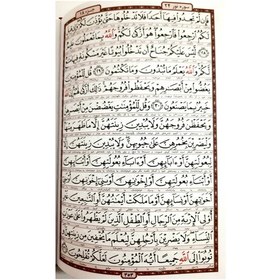 سوره نور ٢٤
فَإِن لَّمْ تَجِدُوا۟ فِيهَآ أَحَدًا فَلَا تَدْخُلُوهَا حَتَّىٰ يُؤْذَنَ لَكُمْ وَإِن قِيلَ
لَكُمُ ٱرْجِعُوا۟ فَٱرْجِعُوا۟ هُوَ أَزْكَىٰ لَكُمْ وَٱللَّهُ بِمَا تَعْمَلُونَ عَلِيمٌ
﴿٢٨﴾ لَّيْسَ عَلَيْكُمْ جُنَاحٌ أَن تَدْخُلُوا۟ بُيُوتًا غَيْرَ مَسْكُونَةٍ فِيهَا مَتَٰعٌ
لَّكُمْ وَٱللَّهُ يَعْلَمُ مَا تُبْدُونَ وَمَا تَكْتُمُونَ ﴿٢٩﴾ قُل لِّلْمُؤْمِنِينَ
يَغُضُّوا۟ مِنْ أَبْصَٰرِهِمْ وَيَحْفَظُوا۟ فُرُوجَهُمْ ذَٰلِكَ أَزْكَىٰ لَهُمْ إِنَّ ٱللَّهَ
خَبِيرٌۢ بِمَا يَصْنَعُونَ ﴿٣٠﴾ وَقُل لِّلْمُؤْمِنَٰتِ يَغْضُضْنَ مِنْ أَبْصَٰرِهِنَّ
وَيَحْفَظْنَ فُرُوجَهُنَّ وَلَا يُبْدِينَ زِينَتَهُنَّ إِلَّا مَا ظَهَرَ مِنْهَا
وَلْيَضْرِبْنَ بِخُمُرِهِنَّ عَلَىٰ جُيُوبِهِنَّ وَلَا يُبْدِينَ زِينَتَهُنَّ
إِلَّا لِبُعُولَتِهِنَّ أَوْ ءَابَآئِهِنَّ أَوْ ءَابَآءِ بُعُولَتِهِنَّ
أَوْ أَبْنَآئِهِنَّ أَوْ أَبْنَآءِ بُعُولَتِهِنَّ أَوْ إِخْوَٰنِهِنَّ أَوْ بَنِىٓ إِخْوَٰنِهِنَّ
أَوْ بَنِىٓ أَخَوَٰتِهِنَّ أَوْ نِسَآئِهِنَّ أَوْ مَا مَلَكَتْ أَيْمَٰنُهُنَّ أَوِ ٱلتَّٰبِعِينَ
غَيْرِ أُو۟لِى ٱلْإِرْبَةِ مِنَ ٱلرِّجَالِ أَوِ ٱلطِّفْلِ ٱلَّذِينَ لَمْ يَظْهَرُوا۟ عَلَىٰ عَوْرَٰتِ
ٱلنِّسَآءِ وَلَا يَضْرِبْنَ بِأَرْجُلِهِنَّ لِيُعْلَمَ مَا يُخْفِينَ مِن زِينَتِهِنَّ
وَتُوبُوٓا۟ إِلَى ٱللَّهِ جَمِيعًا أَيُّهَ ٱلْمُؤْمِنُونَ لَعَلَّكُمْ تُفْلِحُونَ ﴿٣١﴾
٣٥٣